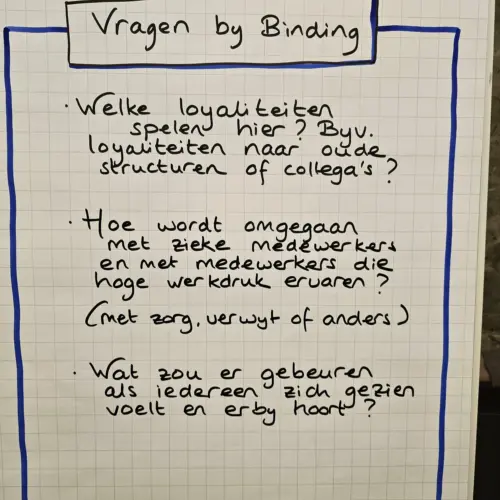 Vragen by Binding
· Welke loyaliteiten
spelen hier? Byv.
loyaliteiten naar oude
structuren of collega's?
· Hoe wordt omgegaan
met zieke medewerkers
en met medewerkers die
hoge werkdruk ervaren?
(met zorg, verwyt of anders)
· Wat zou er gebeuren
als iedereen zich gezien
voelt en erby hoort?